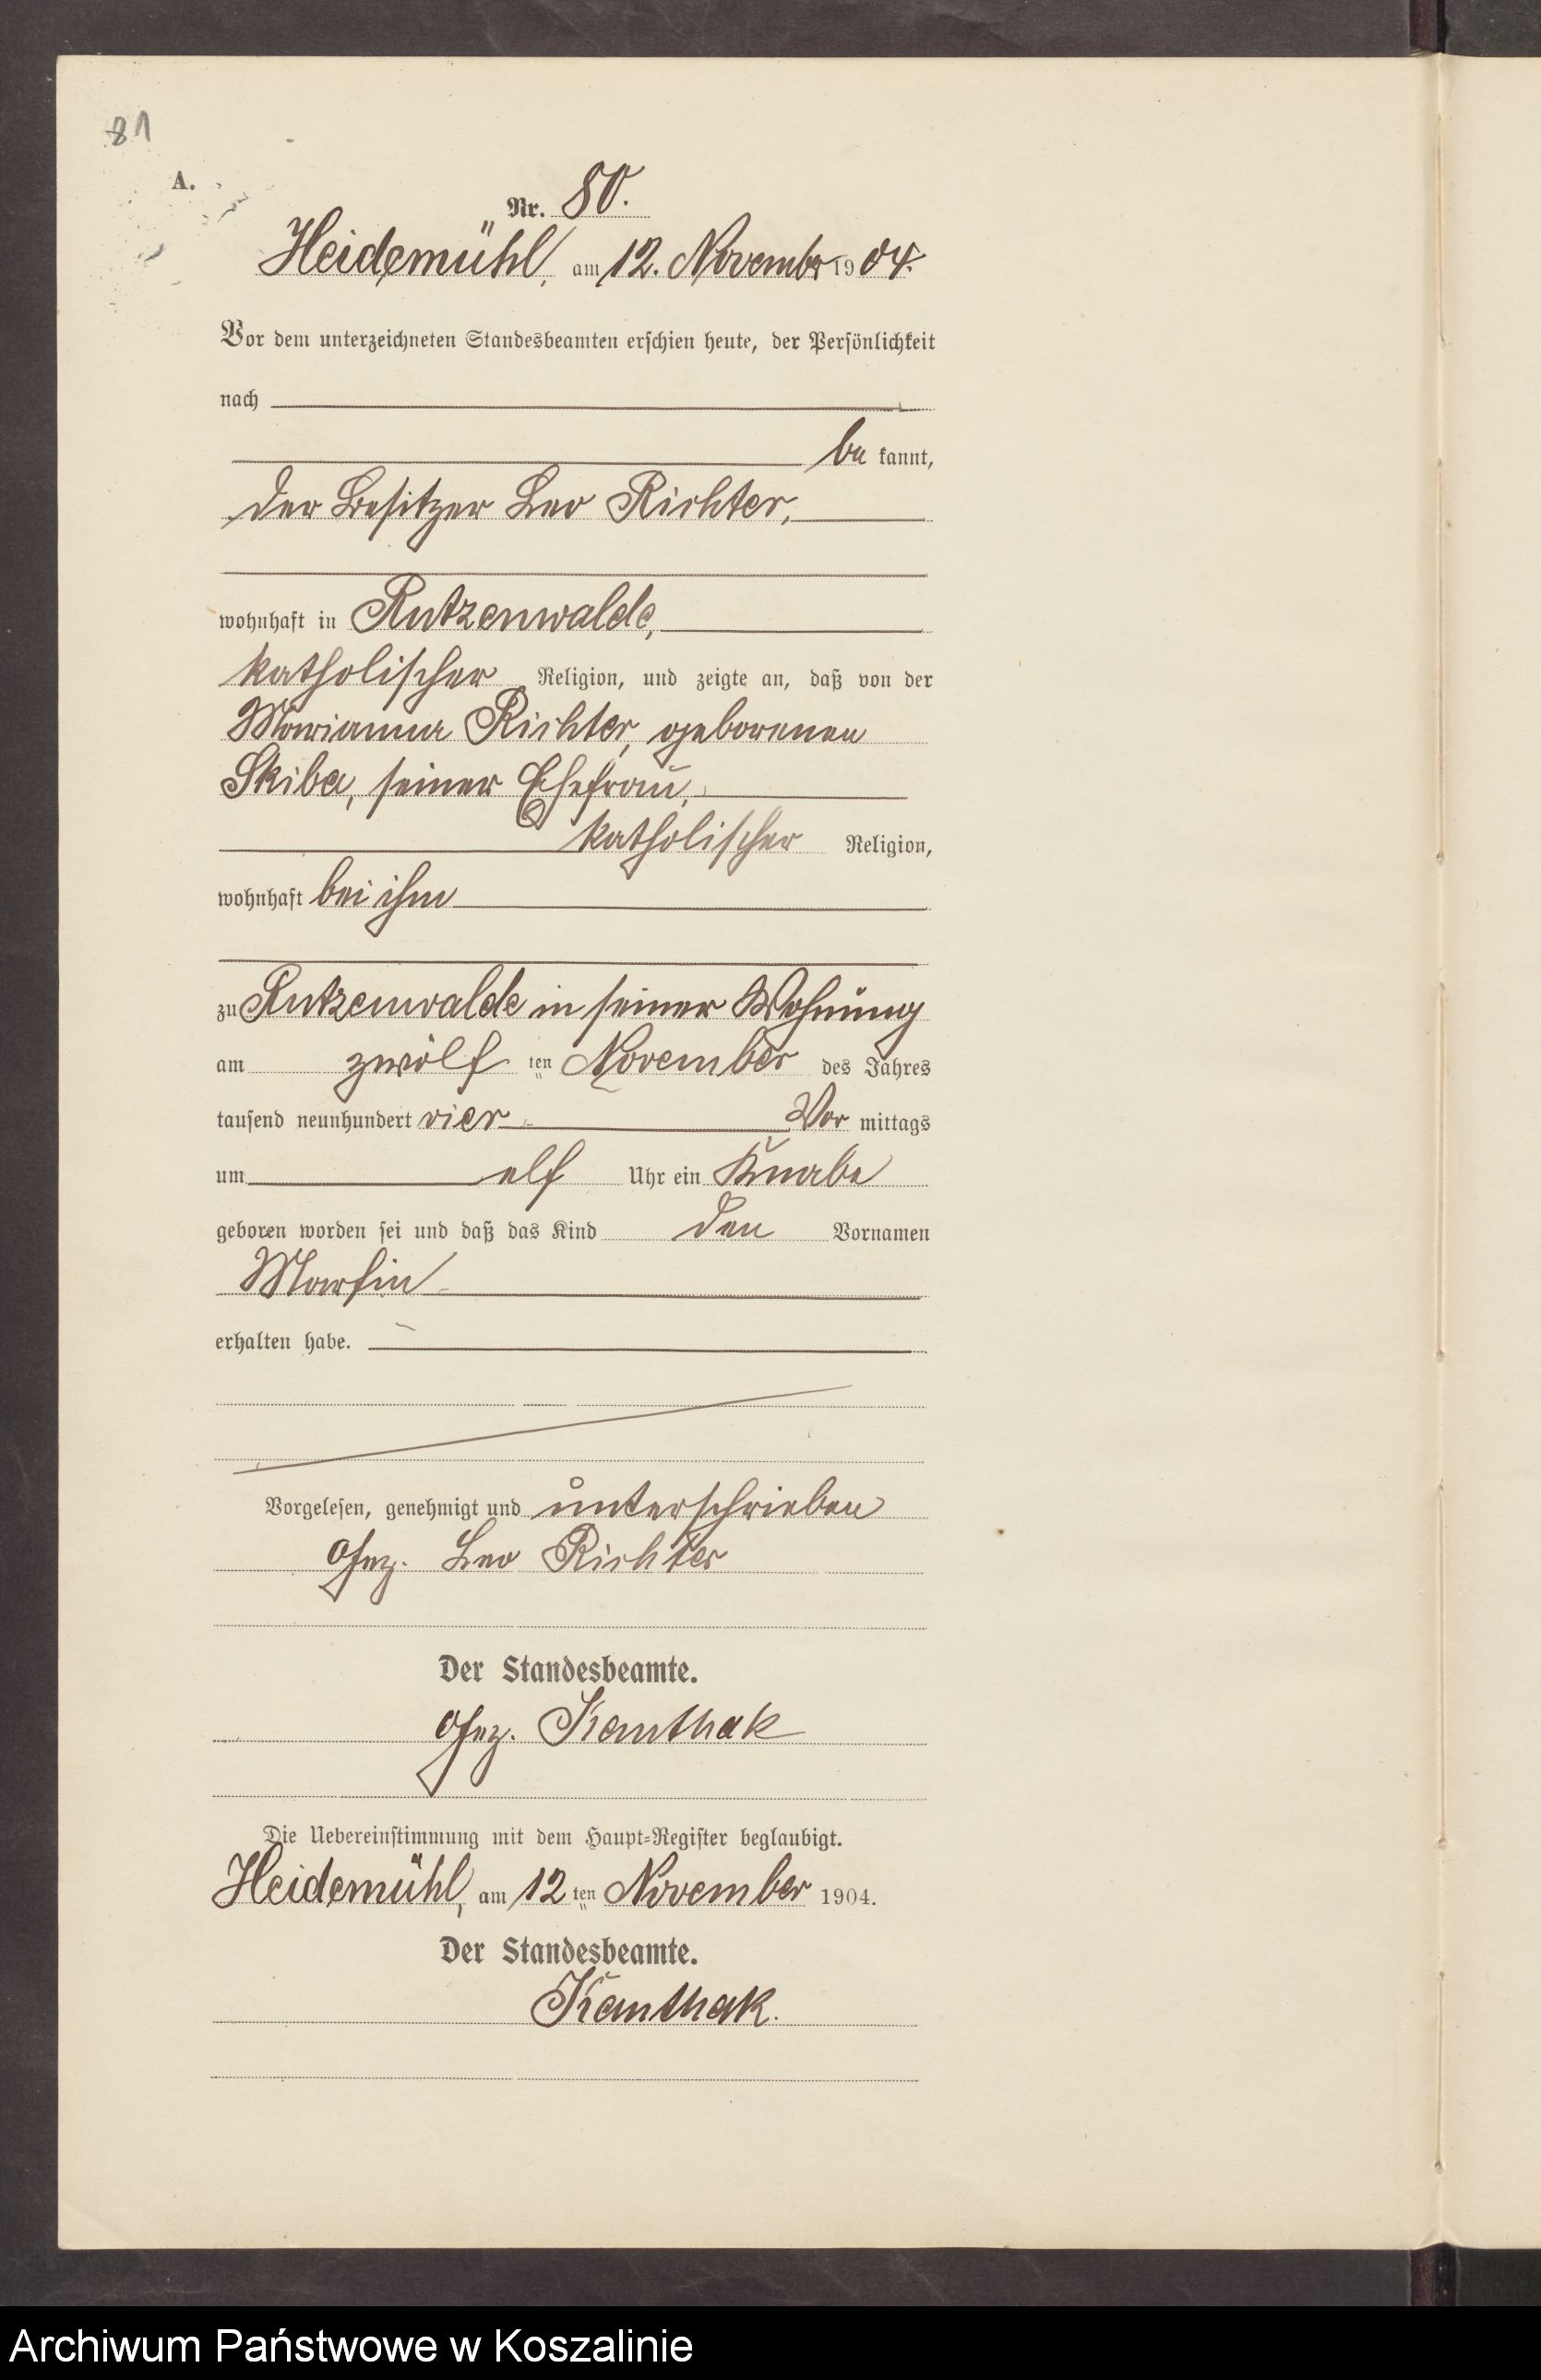 81
A.
Nr. 80.
Heidemühl, am 12. November 1904.
Vor dem unterzeichneten Standesbeamten erschien heute, der Persönlichkeit
nach
be kannt,
der Besitzer Leo Richter,
wohnhaft in Rutzenwalde,
katholischer Religion, und zeigte an, daß von der
Marianna Richter, geborenen
Skiba, seiner Ehefrau,
katholischer Religion,
wohnhaft bei ihm
zu Rutzenwalde in seiner Wohnung
am zwölf ten November des Jahres
tausend neunhundert vier Vor mittags
um elf Uhr ein Knabe
geboren worden sei und daß das Kind den Vornamen
Martin
erhalten habe.
Vorgelesen, genehmigt und unterschrieben
Gez. Leo Richter
Der Standesbeamte.
Gez. Kanthak
Die Uebereinstimmung mit dem Haupt-Register beglaubigt.
Heidemühl, am 12 ten November 1904.
Der Standesbeamte.
Kanthak.
Archiwum Państwowe w Koszalinie